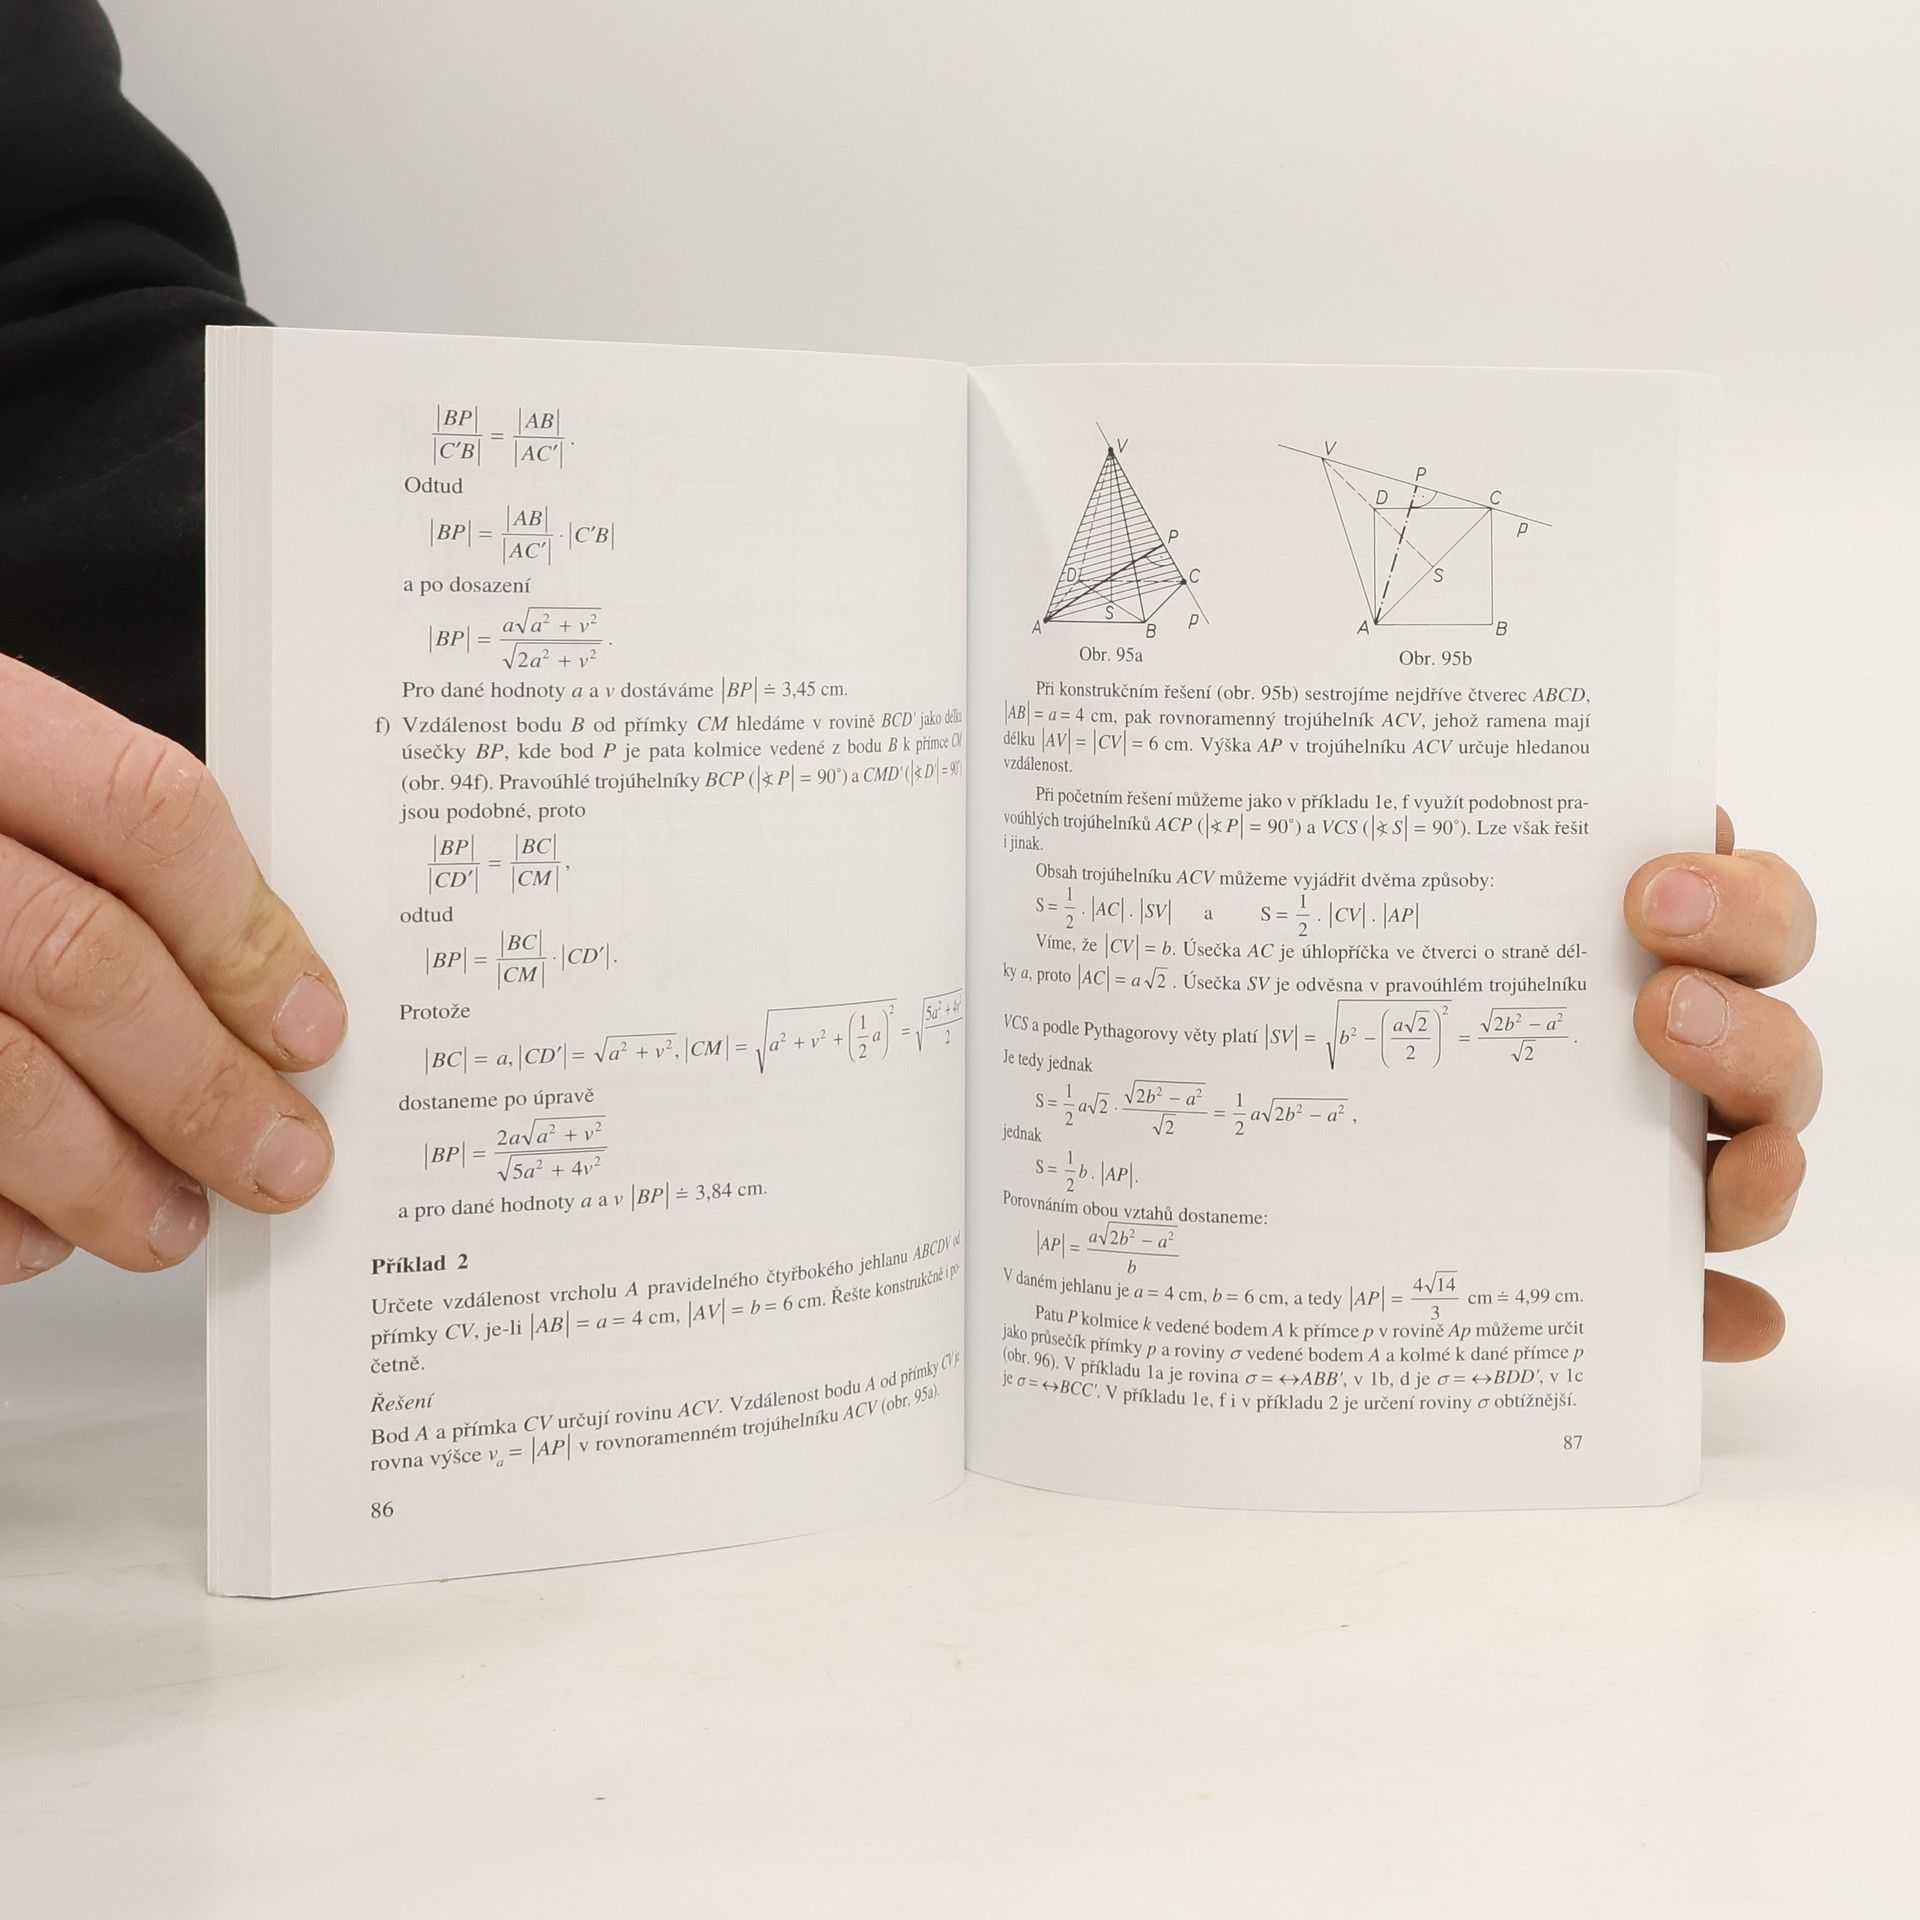 |BP|/|C′B| = |AB|/|AC′|.
Odtud
|BP| = |AB|/|AC′| · |C′B|
a po dosazení
|BP| = a√(a² + v²)/√(2a² + v²).
Pro dané hodnoty a a v dostáváme |BP| ≐ 3,45 cm.
f) Vzdálenost bodu B od přímky CM hledáme v rovině BCD′ jako délku
úsečky BP, kde bod P je pata kolmice vedené z bodu B k přímce CM
(obr. 94f). Pravoúhlé trojúhelníky BCP (|∢ P| = 90°) a CMD′ (|∢ D′| = 90°)
jsou podobné, proto
|BP|/|CD′| = |BC|/|CM|,
odtud
|BP| = |BC|/|CM| · |CD′|.
Protože
|BC| = a, |CD′| = √(a² + v²), |CM| = √(a² + v² + (1/2 a)²) = √(5a² + 4v²)/2
dostaneme po úpravě
|BP| = 2a√(a² + v²)/√(5a² + 4v²)
a pro dané hodnoty a a v |BP| ≐ 3,84 cm.
Příklad 2
Určete vzdálenost vrcholu A pravidelného čtyřbokého jehlanu ABCDV od
přímky CV, je-li |AB| = a = 4 cm, |AV| = b = 6 cm. Řešte konstrukčně i po-
četně.
Řešení
Bod A a přímka CV určují rovinu ACV. Vzdálenost bodu A od přímky CV je
rovna výšce vₐ = |AP| v rovnoramenném trojúhelníku ACV (obr. 95a).
86
V
P
D
C
S
A
B
p
Obr. 95a
V
P
D
C
p
S
A
B
Obr. 95b
Při konstrukčním řešení (obr. 95b) sestrojíme nejdříve čtverec ABCD,
|AB| = a = 4 cm, pak rovnoramenný trojúhelník ACV, jehož ramena mají
délku |AV| = |CV| = 6 cm. Výška AP v trojúhelníku ACV určuje hledanou
vzdálenost.
Při početním řešení můžeme jako v příkladu 1e, f využít podobnost pra-
voúhlých trojúhelníků ACP (|∢ P| = 90°) a VCS (|∢ S| = 90°). Lze však řešit
i jinak.
Obsah trojúhelníku ACV můžeme vyjádřit dvěma způsoby:
S = 1/2 . |AC| . |SV| a S = 1/2 . |CV| . |AP|
Víme, že |CV| = b. Úsečka AC je úhlopříčka ve čtverci o straně dél-
ky a, proto |AC| = a√2 . Úsečka SV je odvěsna v pravoúhlém trojúhelníku
VCS a podle Pythagorovy věty platí |SV| = √(b² − (a√2/2)²) = √(2b² − a²)/√2 .
Je tedy jednak
S = 1/2 a√2 . √(2b² − a²)/√2 = 1/2 a√(2b² − a²) ,
jednak
S = 1/2 b . |AP|.
Porovnáním obou vztahů dostaneme:
|AP| = a√(2b² − a²)/b
V daném jehlanu je a = 4 cm, b = 6 cm, a tedy |AP| = 4√14/3 cm ≐ 4,99 cm.
Patu P kolmice k vedené bodem A k přímce p v rovině Ap můžeme určit
jako průsečík přímky p a roviny σ vedené bodem A a kolmé k dané přímce p
(obr. 96). V příkladu 1a je rovina σ = ↔ABB′, v 1b, d je σ = ↔BDD′, v 1c
je σ = ↔BCC′. V příkladu 1e, f i v příkladu 2 je určení roviny σ obtížnější.
87